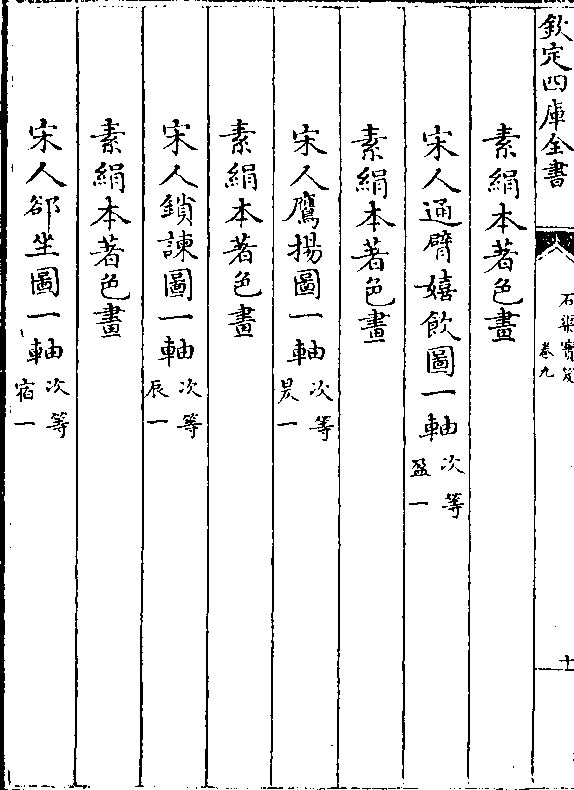 欽定四庫全書
石渠寳笈
卷九
十
素絹本著色畫
宋人通臂嬉飲圖一軸次等盈一
素絹本著色畫
宋人鷹揚圖一軸次等昃一
素絹本著色畫
宋人鎖諫圖一軸次等辰一
素絹本著色畫
宋人郤坐圖一軸次等宿一